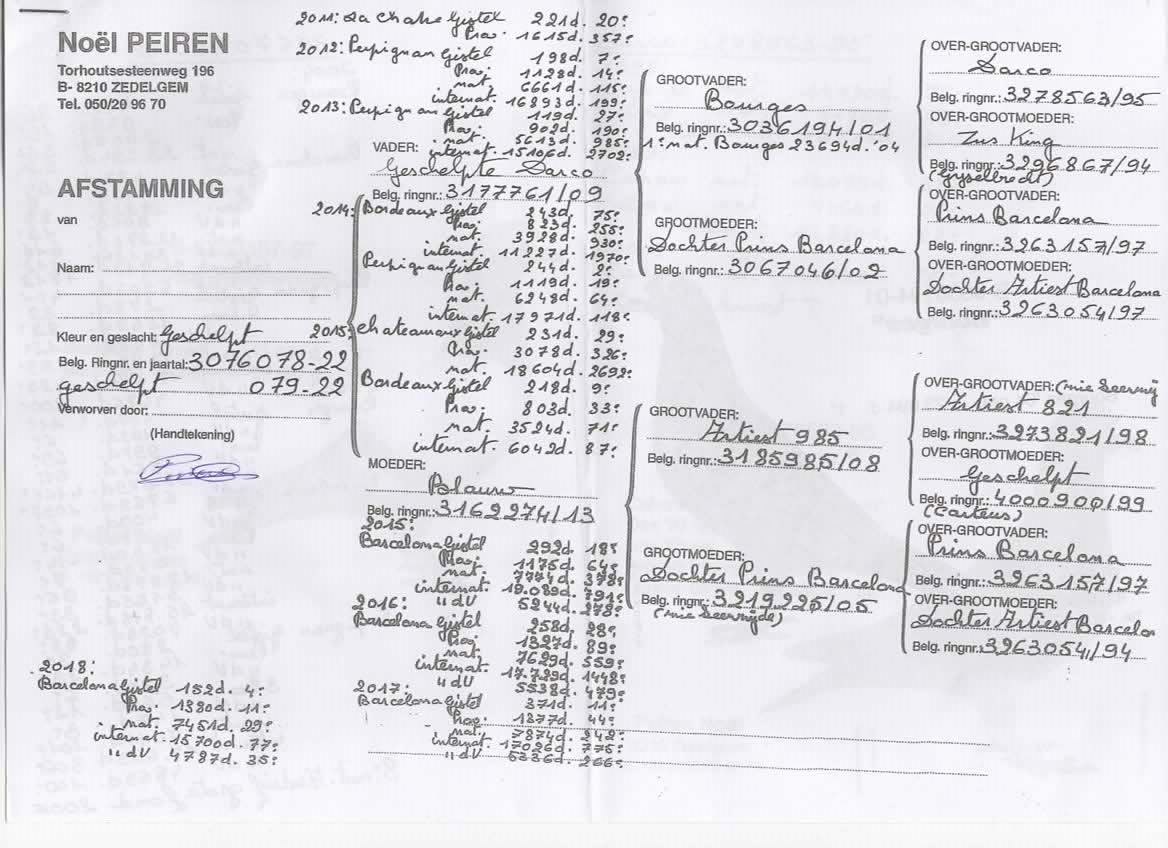 Noël PEIREN
Torhoutsesteenweg 196
B- 8210 ZEDELGEM
Tel. 050/20 96 70
AFSTAMMING
van
Naam:
Kleur en geslacht: Geschelpt
Belg. Ringnr. en jaartal: 3076078-22
geschelpt 079-22
Verworven door:
(Handtekening)
2018:
Barcelona Gistel 152d. 4e
Prov. 1380d. 11e
nat. 7451d. 29e
internat. 15700d. 77e
" dV 4787d. 35e
2011: La Chatre Gistel 221d. 20e
Prov. 1615d. 357e
2012: Perpignan Gistel 198d. 7e
Prov. 1128d. 14e
nat. 6661d. 115e
internat. 16893d. 199e
2013: Perpignan Gistel 119d. 27e
Prov. 902d. 190e
nat. 5613d. 985e
internat. 15106d. 2702e
VADER:
Geschelpte Darco
Belg. ringnr.: 3177761/09
2014: Bordeaux Gistel 243d. 75e
Prov. 823d. 255e
nat. 3928d. 930e
internat. 11227d. 1970e
Perpignan Gistel 244d. 2e
Prov. 1119d. 19e
nat. 6248d. 64e
internat. 17971d. 118e
2015: Chateauroux Gistel 231d. 29e
Prov. 3078d. 326e
nat. 18604d. 2692e
Bordeaux Gistel 218d. 9e
Prov. 803d. 33e
nat. 3524d. 71e
internat. 6042d. 87e
MOEDER:
Blauw
Belg. ringnr.: 3162274/13
2015:
Barcelona Gistel 292d. 18e
Prov. 1175d. 64e
nat. 7774d. 378e
internat. 19.089d. 791e
" dV 5244d. 278e
2016:
Barcelona Gistel 258d. 28e
Prov. 1327d. 89e
nat. 7629d. 559e
internat. 17.729d. 1448e
" dV 5538d. 479e
2017:
Barcelona Gistel 371d. 11e
Prov. 1377d. 44e
nat. 7874d. 342e
internat. 17026d. 775e
" dV 5336d. 266e
GROOTVADER:
Bourges
Belg. ringnr.: 3036194/01
1e nat. Bourges 23694d. '04
GROOTMOEDER:
Dochter Prins Barcelona
Belg. ringnr.: 3067046/02
GROOTVADER:
Artiest 985
Belg. ringnr.: 3185985/08
GROOTMOEDER:
Dochter Prins Barcelona
Belg. ringnr.: 3219225/05
OVER-GROOTVADER:
Darco
Belg. ringnr.: 3278563/95
OVER-GROOTMOEDER:
Zus King
Belg. ringnr.: 3296867/94
(Gyselbrecht)
OVER-GROOTVADER:
Prins Barcelona
Belg. ringnr.: 3263157/97
OVER-GROOTMOEDER:
Dochter Artiest Barcelona
Belg. ringnr.: 3263054/97
OVER-GROOTVADER:
Artiest 821
Belg. ringnr.: 3273821/98
OVER-GROOTMOEDER:
Geschelpt
Belg. ringnr.: 4000900/99
(Carteus)
OVER-GROOTVADER:
Prins Barcelona
Belg. ringnr.: 3263157/97
OVER-GROOTMOEDER:
Dochter Artiest Barcelon
Belg. ringnr.: 3263054/94